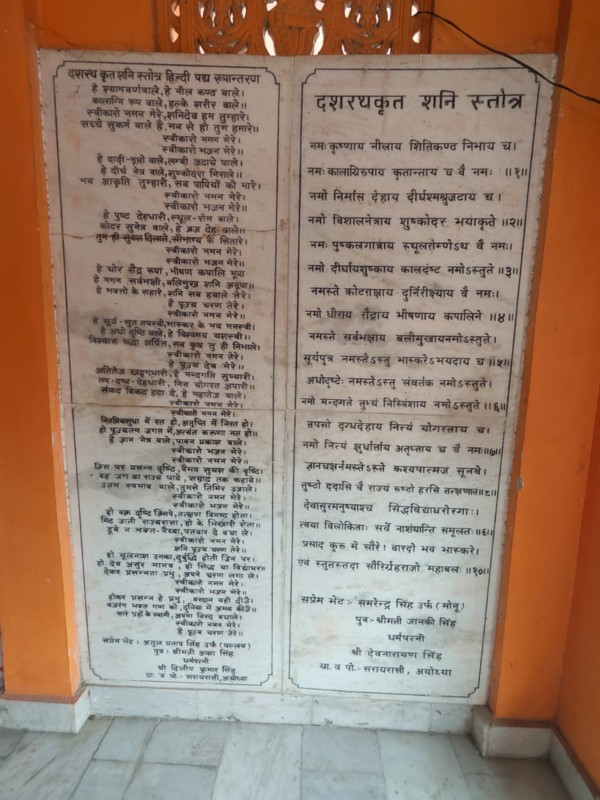 दशरथ कृत शनि स्तोत्र हिन्दी पद्य रूपान्तरण
हे श्यामवर्णवाले,हे नील कण्ठ वाले।
कालाग्नि रूप वाले,हल्के शरीर वाले॥
स्वीकारो नमन मेरे,शनिदेव हम तुम्हारे।
सच्चे सुकर्म वाले है,मन से हो तुम हमारे॥
स्वीकारो नमन मेरे।
स्वीकारो भजन मेरे॥
हे दाढ़ी-मूछों वाले,लम्बी जटायें पाले।
हे दीर्घ नेत्र वाले,शुष्कोदरा निराले॥
भय आकृति तुम्हारी,सब पापियों को मारे।
स्वीकारो नमन मेरे।
स्वीकारो भजन मेरे॥
हे पुष्ट देहधारी,स्थूल-रोम वाले।
कोटर सुनेत्र वाले,हे बज्र देह वाले॥
तुम ही सुयश दिलाते,सौभाग्य के सितारे।
स्वीकारो नमन मेरे।
स्वीकारो भजन मेरे॥
हे घोर रौद्र रूपा,भीषण कपालि भूपा
हे नमन सर्वभक्षी,बलिमुख शनि अनूपा॥
हे भक्तो के सहारे,शनि सब हवाले तेरे।
हे पूज्य चरण तेरे।
स्वीकारो नमन मेरे॥
हे सूर्य-सुत तपस्वी,भास्कर के भय मनस्वी।
हे अधो दृष्टि वाले,हे विश्वमय यशस्वी॥
विश्वास श्रद्धा अर्पित,सब कुछ तु ही निभाले।
स्वीकारो नमन मेरे।
हे पूज्य देव मेरे॥
अतितेज खड्गधारी,हे मन्दगति सुप्यारी।
तप-दुग्ध-देहधारी, नित योगरत अपारी॥
संकट विकट हटा दे, हे महातेज वाले।
स्वीकारो नमन मेरे।
स्वीकारो नमन मेरे॥
नितप्रियसुधा में रत हो,अतृप्ति में निरत हो।
हो पूज्यतम जगत में,अत्यंत करुणा नत हो॥
हे ज्ञान नेत्र वाले,पावन प्रकाश वाले।
स्वीकारो भजन मेरे।
स्वीकारो नमन मेरे॥
जिस पर प्रसन्न दृष्टि,वैभव सुयश की वृष्टि।
वह जग का राज्य पाये, सम्राट तक कहाये॥
उत्तम स्वभाव वाले,तुमसे तिमिर उजाले।
स्वीकारो नमन मेरे।
स्वीकारो भजन मेरे॥
हो वक्र दृष्टि जिसपे,तत्क्षण विनष्ट होता।
मिट जाती राज्यसत्ता,हो के भिखारी रोता॥
डूबे न भक्त-नैय्या,पतवार दे बचा ले।
स्वीकारो नमन मेरे।
शनि पूज्य चरण तेरे॥
हो मूलनाश उनका,दुर्बुद्धि होती जिन पर।
हो देव असुर मानव, हो सिद्ध या विद्याधर॥
देकर प्रसन्नता प्रभु, अपने चरण लगा ले।
स्वीकारो नमन मेरे।
स्वीकारो भजन मेरे॥
होकर प्रसन्न हे प्रभु, वरदान यही दीजै।
बजरंग भक्त गण को,दुनिया में अभय कीजै॥
सारे ग्रहों के स्वामी,अपना विरद बचाले।
स्वीकारो नमन मेरे।
हे पूज्य चरण तेरे॥
सप्रेम भेंट:- अतुल प्रताप सिंह उर्फ (पल्लव)
पुत्र: श्रीमती आशा सिंह
धर्मपत्नी
श्री दिलीप कुमार सिंह
ग्रा. व पो.- सरायरासी,अयोध्या
दशरथकृत शनि स्तोत्र
नमः कृष्णाय नीलाय शितिकण्ठ निभाय च।
नमः कालाग्निरुपाय कृतान्ताय च वै नमः ॥१॥
नमो निर्मास देहाय दीर्घश्मश्रुजटाय च।
नमो विशालनेत्राय शुष्कोदर भयाकृते ॥२॥
नमः पुष्कलगात्राय स्थूलरोम्णेऽथ वै नमः।
नमो दीर्घायशुष्काय कालदंष्ट नमोऽस्तुते ॥३॥
नमस्ते कोटराक्षाय दुर्निरीक्ष्याय वै नमः।
नमो धीराय रौद्राय भीषणाय कपालिने ॥४॥
नमस्ते सर्वभक्षाय बलीमुखायनमोऽस्तुते।
सूर्यपुत्र नमस्तेऽस्तु भास्करेऽभयदाय च ॥५॥
अधोदृष्टेः नमस्तेऽस्तु संवर्तक नमोऽस्तुते।
नमो मन्दगते तुभ्यं निस्त्रिंशाय नमोऽस्तुते ॥६॥
तपसो दग्धदेहाय नित्यं योगरताय च।
नमो नित्यं क्षुर्धार्ताय अतृप्ताय च वै नमः॥७॥
ज्ञानचक्षर्नमस्तेऽस्ते कश्यपात्मज सूनवे।
तुष्टो ददासि वै राज्यं रुष्टो हरसि तत्क्षणात॥८॥
देवासुरमनुष्याश्च सिद्धविद्याधरोरगाः।
त्वया विलोकिताः सर्वे नाशंयान्ति समूलतः॥९॥
प्रसाद कुरू में सौरे! वारदो भव भास्करे।
एवं स्तुतस्तदा सौरिर्ग्रहराजो महाबलः॥१०॥
सप्रेम भेंट:- समरेन्द्र सिंह उर्फ (मोनू)
पुत्रः श्रीमती जानकी सिंह
धर्मपत्नी
श्री देवनारायण सिंह
ग्रा. व पो.- सरायरासी, अयोध्या